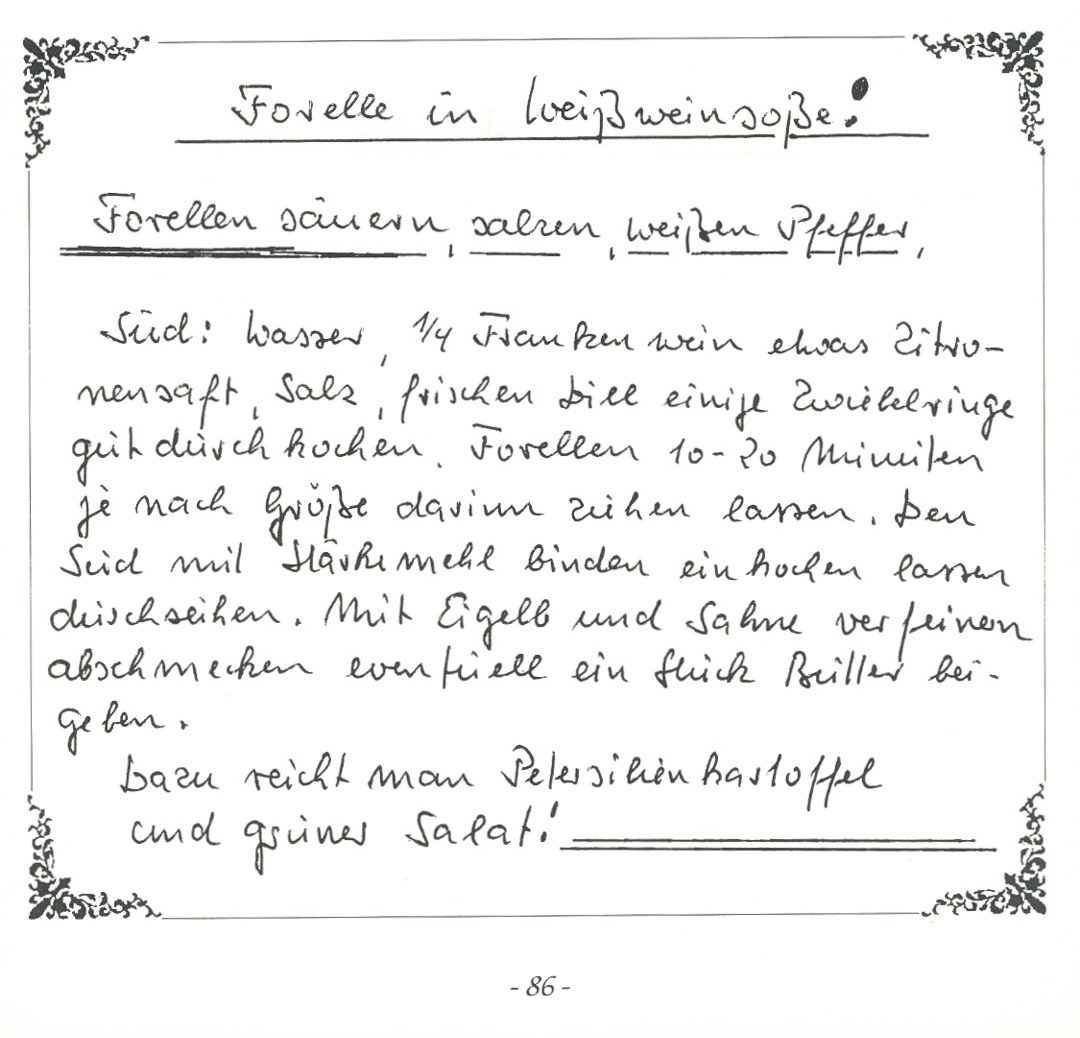 Forelle in Weißweinsoße!
Forellen säuern, salzen, weißen Pfeffer,
Sud: Wasser, 1/4 Frankenwein etwas Zitro-
nensaft, Salz, frischen Dill einige Zwiebelringe
gut durchkochen. Forellen 10-20 Minuten
je nach Größe darinn ziehen lassen. Den
Sud mit Stärkemehl binden einkochen lassen
durchseihen. Mit Eigelb und Sahne verfeinern
abschmecken eventuell ein Stück Butter bei-
geben.
Dazu reicht man Petersilienkartoffel
und grüner Salat!
- 86 -